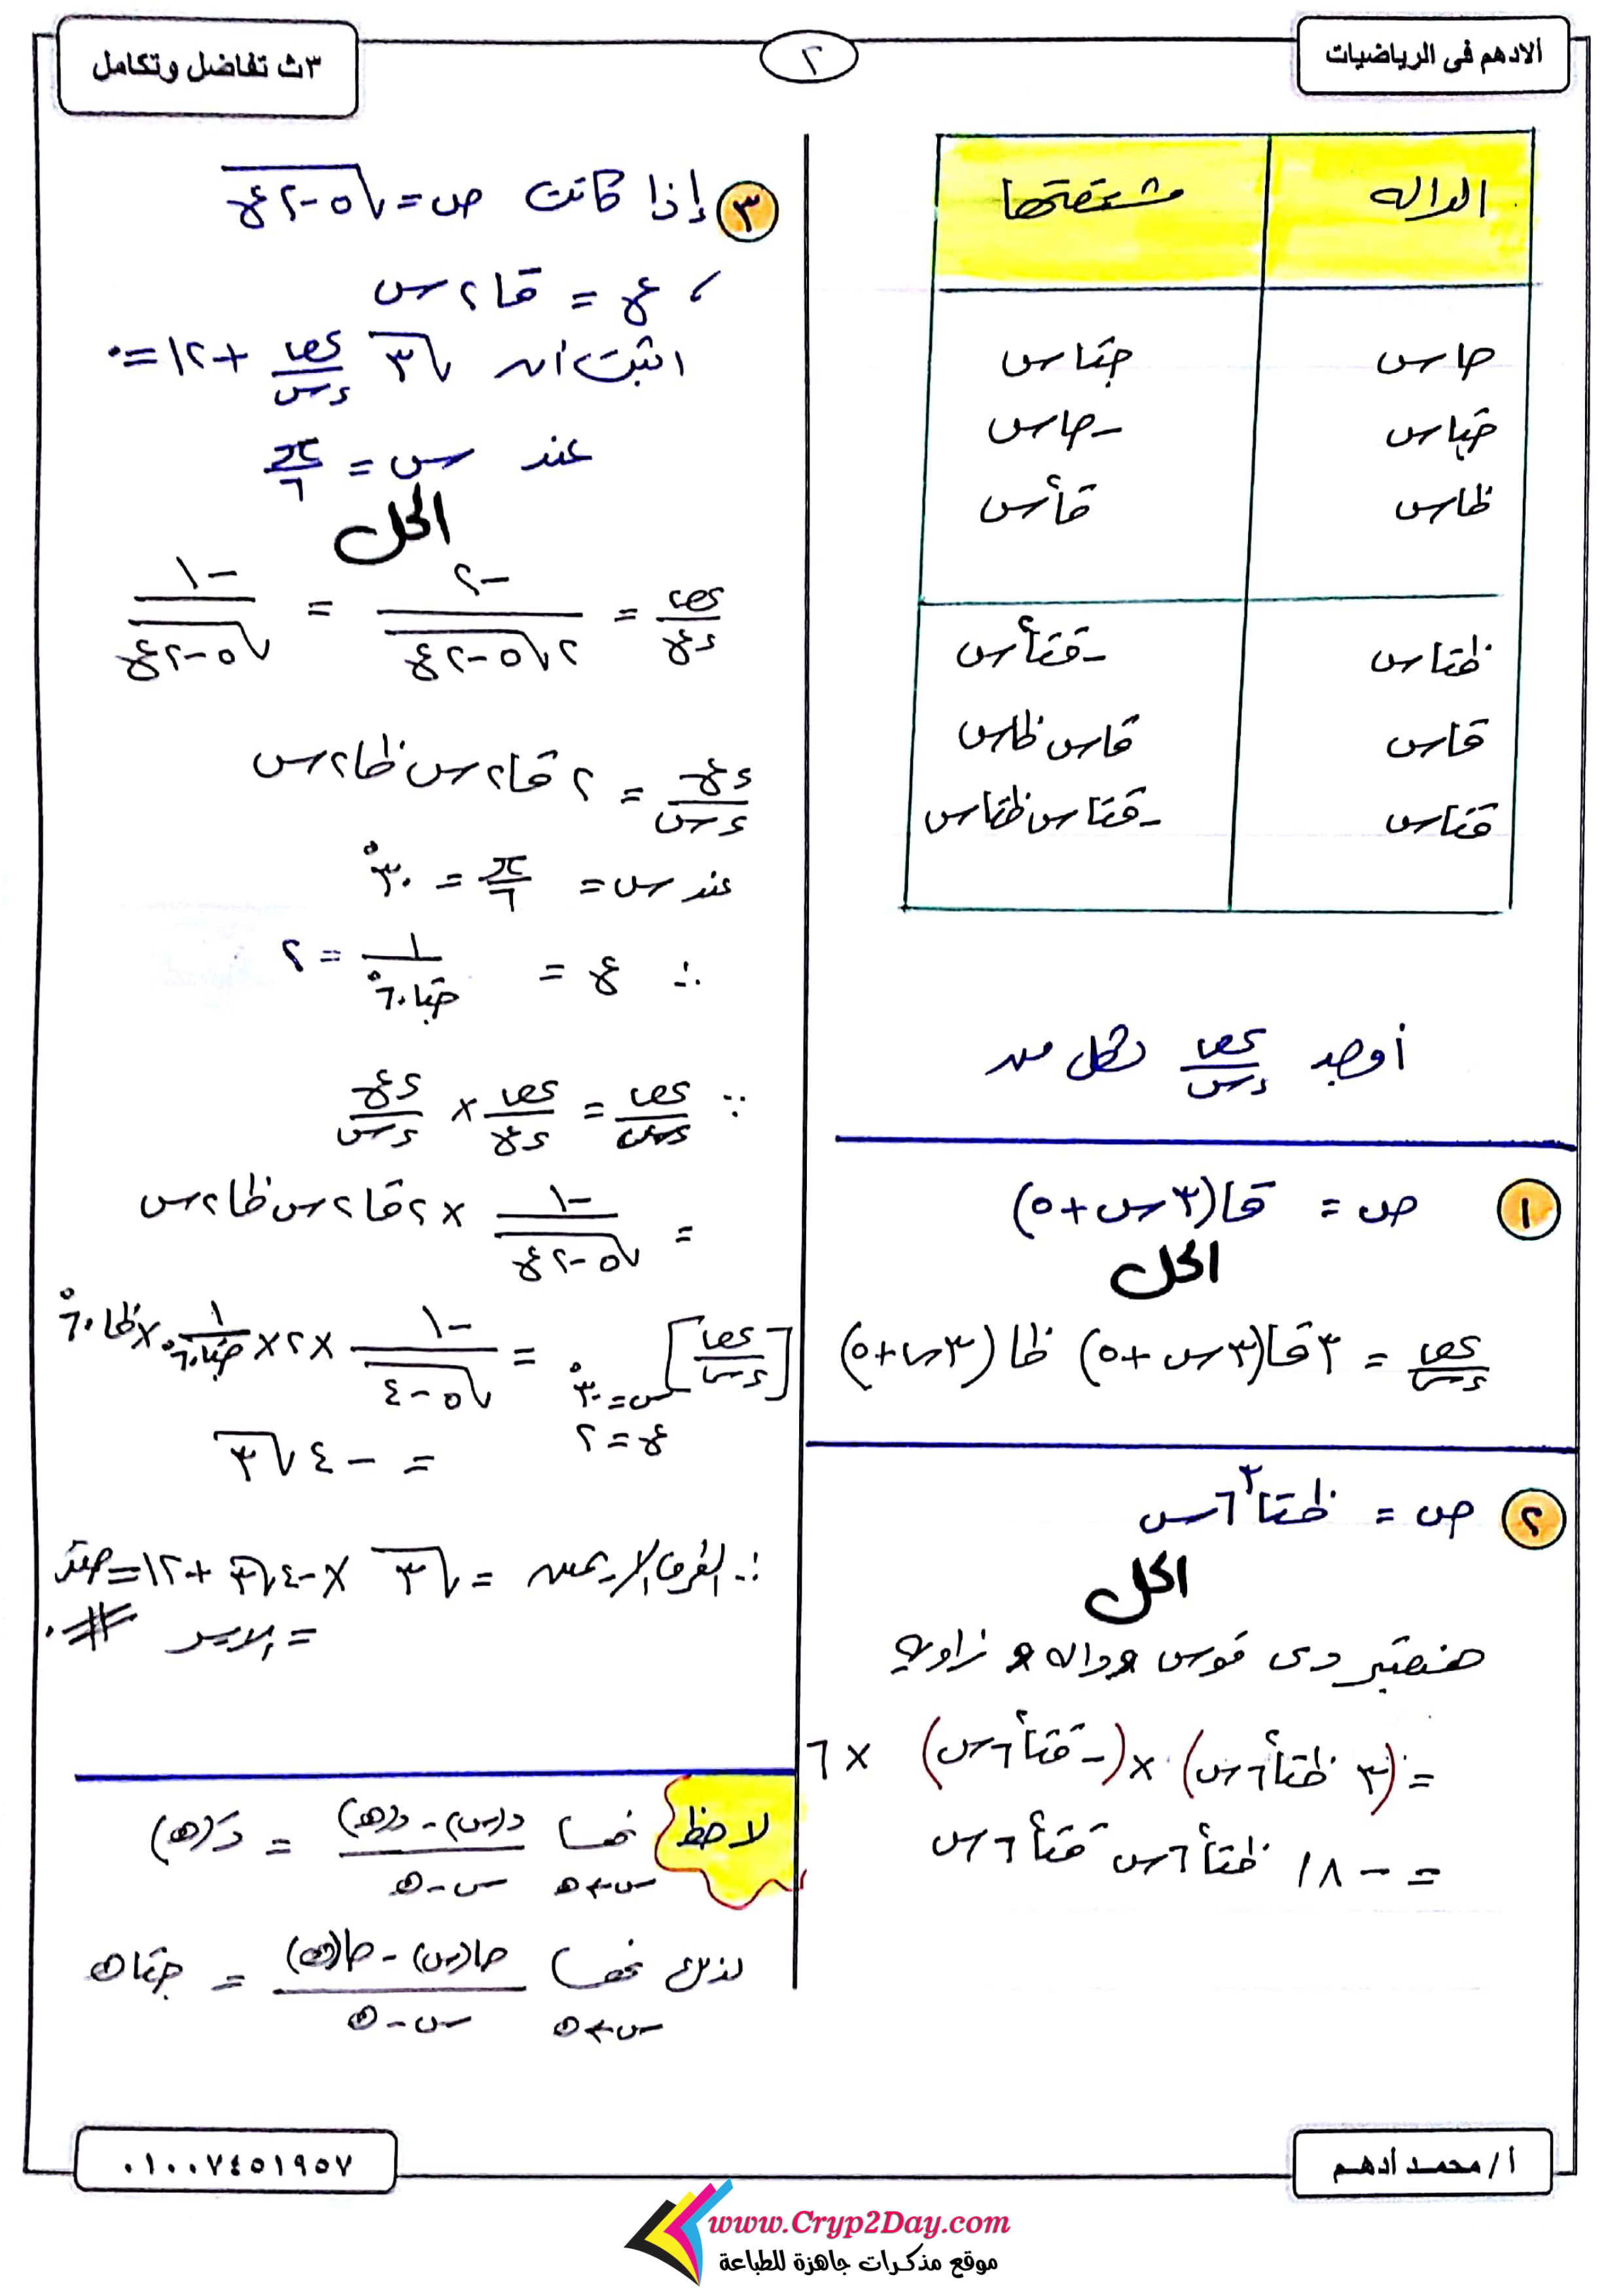 الادهم فى الرياضيات
٢
٣ث تفاضل وتكامل
الداله | مشتقتها
حاس | جتاس
جتاس | -حاس
ظاس | قا٢س
ظتاس | -قتا٢س
قاس | قاس ظاس
قتاس | -قتاس ظتاس
أوجد ءص/ءس لكل من
١ ص = قا(٣س+٥)
الحل
ءص/ءس = ٣قا(٣س+٥) ظا(٣س+٥)
٢ ص = ظتا٣ ٦س
الحل
هنعتبر دى قوس و داله و زاويه
= (٣ ظتا٢ ٦س) × (-قتا٢ ٦س) × ٦
= -١٨ ظتا٢ ٦س قتا٢ ٦س
٣ إذا كانت ص = √(٥-٢ع)
، ع = قا٢س
اثبت أن √٣ ءص/ءس + ١٢ = ٠
عند س = π/٦
الحل
ءص/ءع = -٢/(٢√(٥-٢ع)) = -١/√(٥-٢ع)
ءع/ءس = ٢ قا٢س ظا٢س
عند س = π/٦ = ٣٠°
∴ ع = ١/جتا٦٠° = ٢
∵ ءص/ءس = ءص/ءع × ءع/ءس
= -١/√(٥-٢ع) × ٢قا٢س ظا٢س
[ءص/ءس] س=٣٠° ع=٢ = -١/√(٥-٤) × ٢ × ١/جتا٦٠° × ظا٦٠°
= -٤√٣
∴ الطرف الايمن = √٣ × -٤√٣ + ١٢ = صفر
= الايسر #.
لاحظ نهــا س←ه (د(س)-د(ه))/(س-ه) = دَ(ه)
لذلك نهــا س←ه (حا(س)-حا(ه))/(س-ه) = جتاه
أ/محمد أدهم
٠١٠٠٧٤٥١٩٥٧
www.Cryp2Day.com
موقع مذكرات جاهزة للطباعة